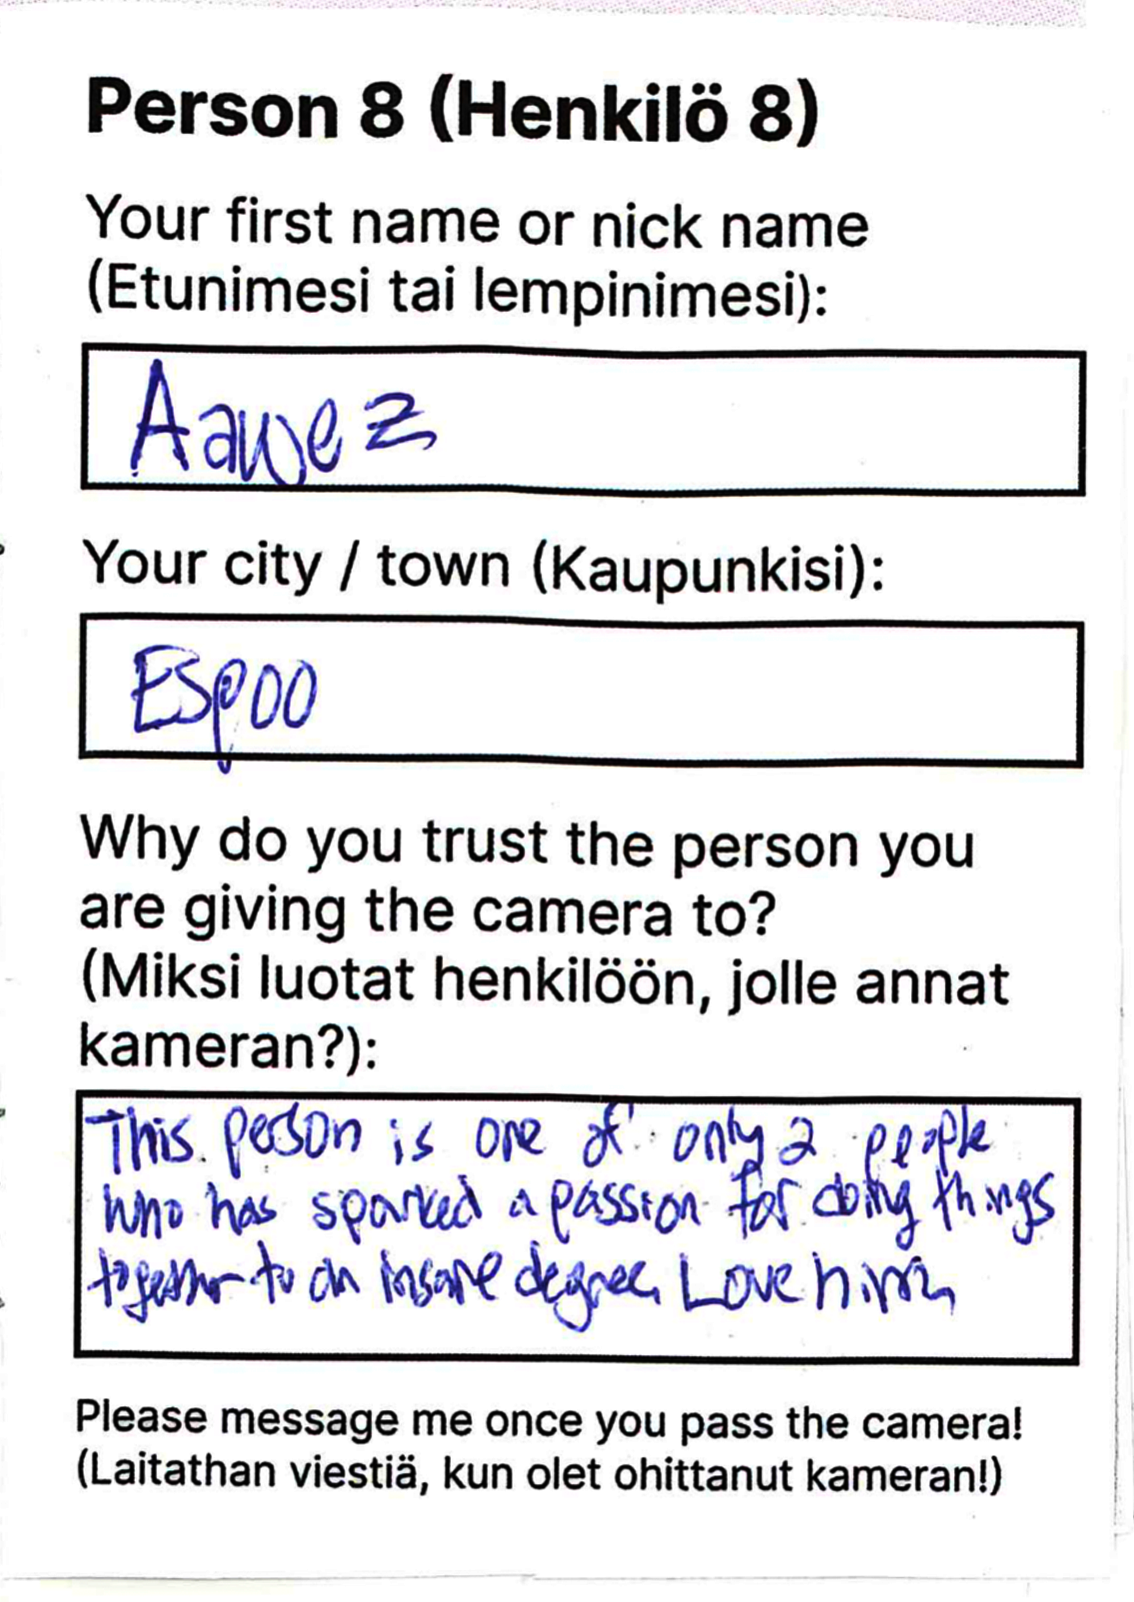 Person 8 (Henkilö 8)
Your first name or nick name
(Etunimesi tai lempinimesi):
Aawez
Your city / town (Kaupunkisi):
Espoo
Why do you trust the person you
are giving the camera to?
(Miksi luotat henkilöön, jolle annat
kameran?):
This person is one of only 2 people
who has sparked a passion for doing things
together to an insane degree. Love him
Please message me once you pass the camera!
(Laitathan viestiä, kun olet ohittanut kameran!)